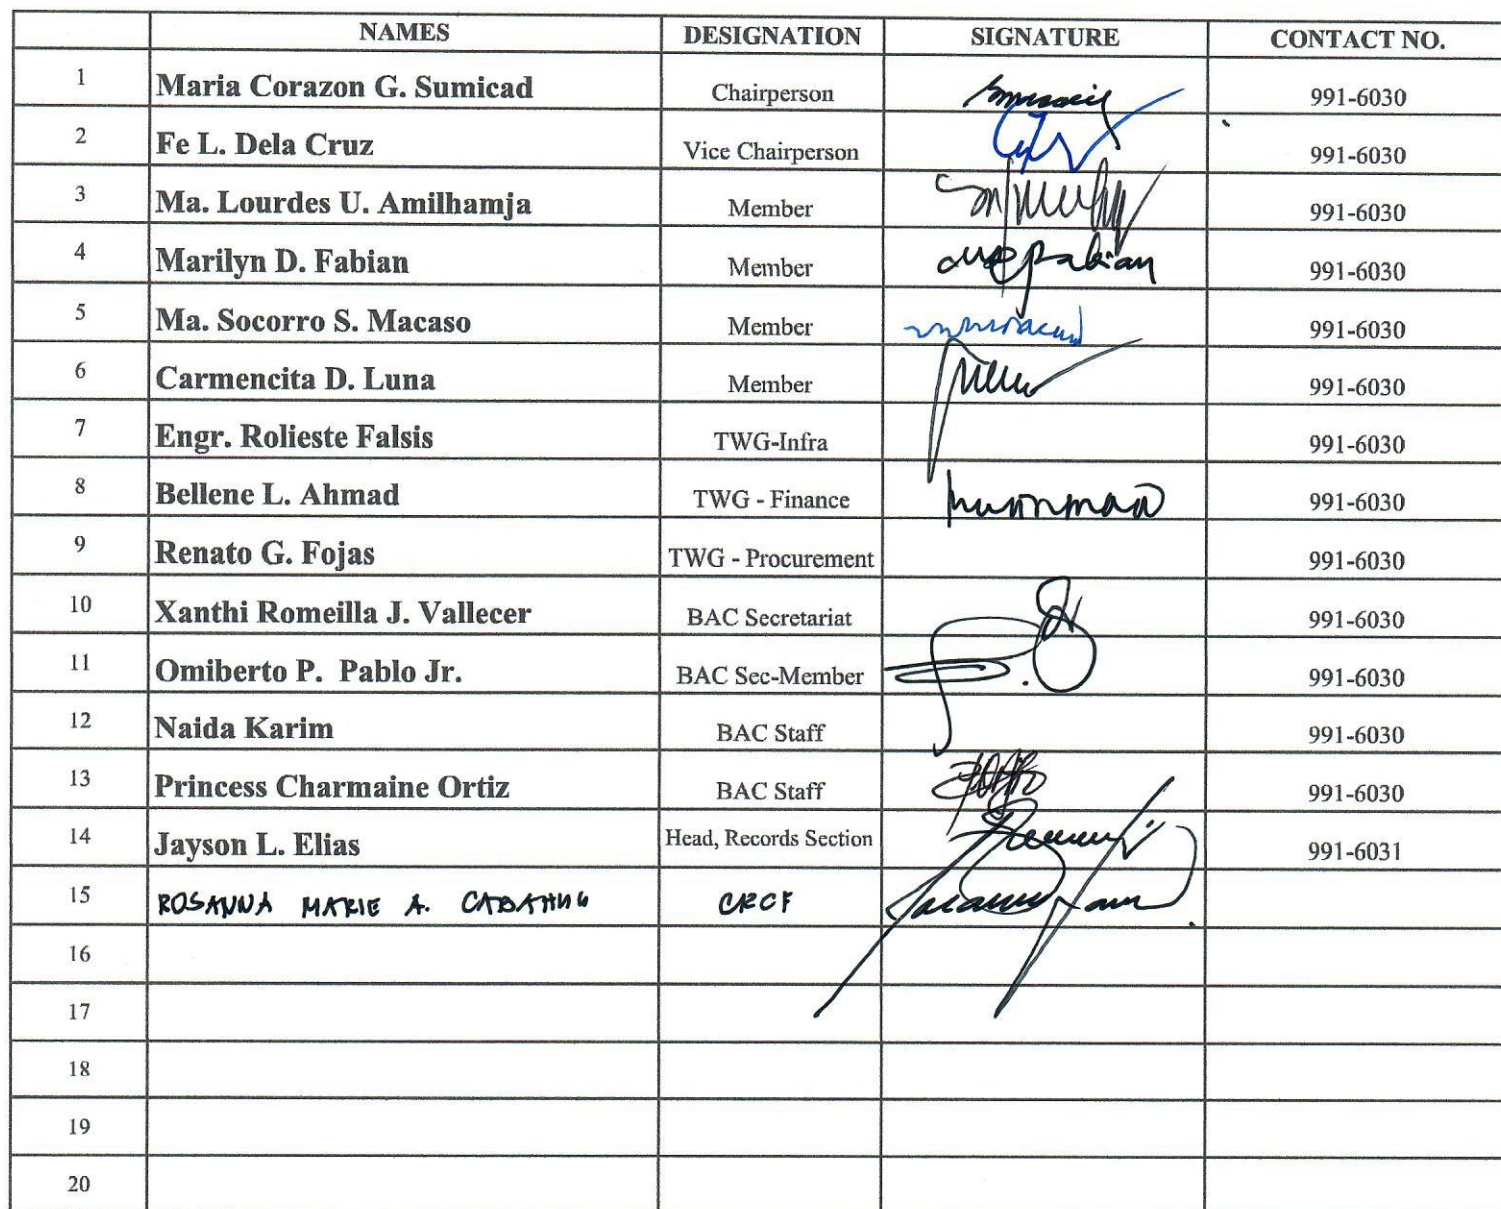 NAMES DESIGNATION SIGNATURE CONTACT NO.
1 Maria Corazon G. Sumicad Chairperson 991-6030
2 Fe L. Dela Cruz Vice Chairperson 991-6030
3 Ma. Lourdes U. Amilhamja Member 991-6030
4 Marilyn D. Fabian Member 991-6030
5 Ma. Socorro S. Macaso Member 991-6030
6 Carmencita D. Luna Member 991-6030
7 Engr. Rolieste Falsis TWG-Infra 991-6030
8 Bellene L. Ahmad TWG - Finance 991-6030
9 Renato G. Fojas TWG - Procurement 991-6030
10 Xanthi Romeilla J. Vallecer BAC Secretariat 991-6030
11 Omiberto P. Pablo Jr. BAC Sec-Member 991-6030
12 Naida Karim BAC Staff 991-6030
13 Princess Charmaine Ortiz BAC Staff 991-6030
14 Jayson L. Elias Head, Records Section 991-6031
15 ROSANNA MARIE A. CABAHUG
16
17
18
19
20